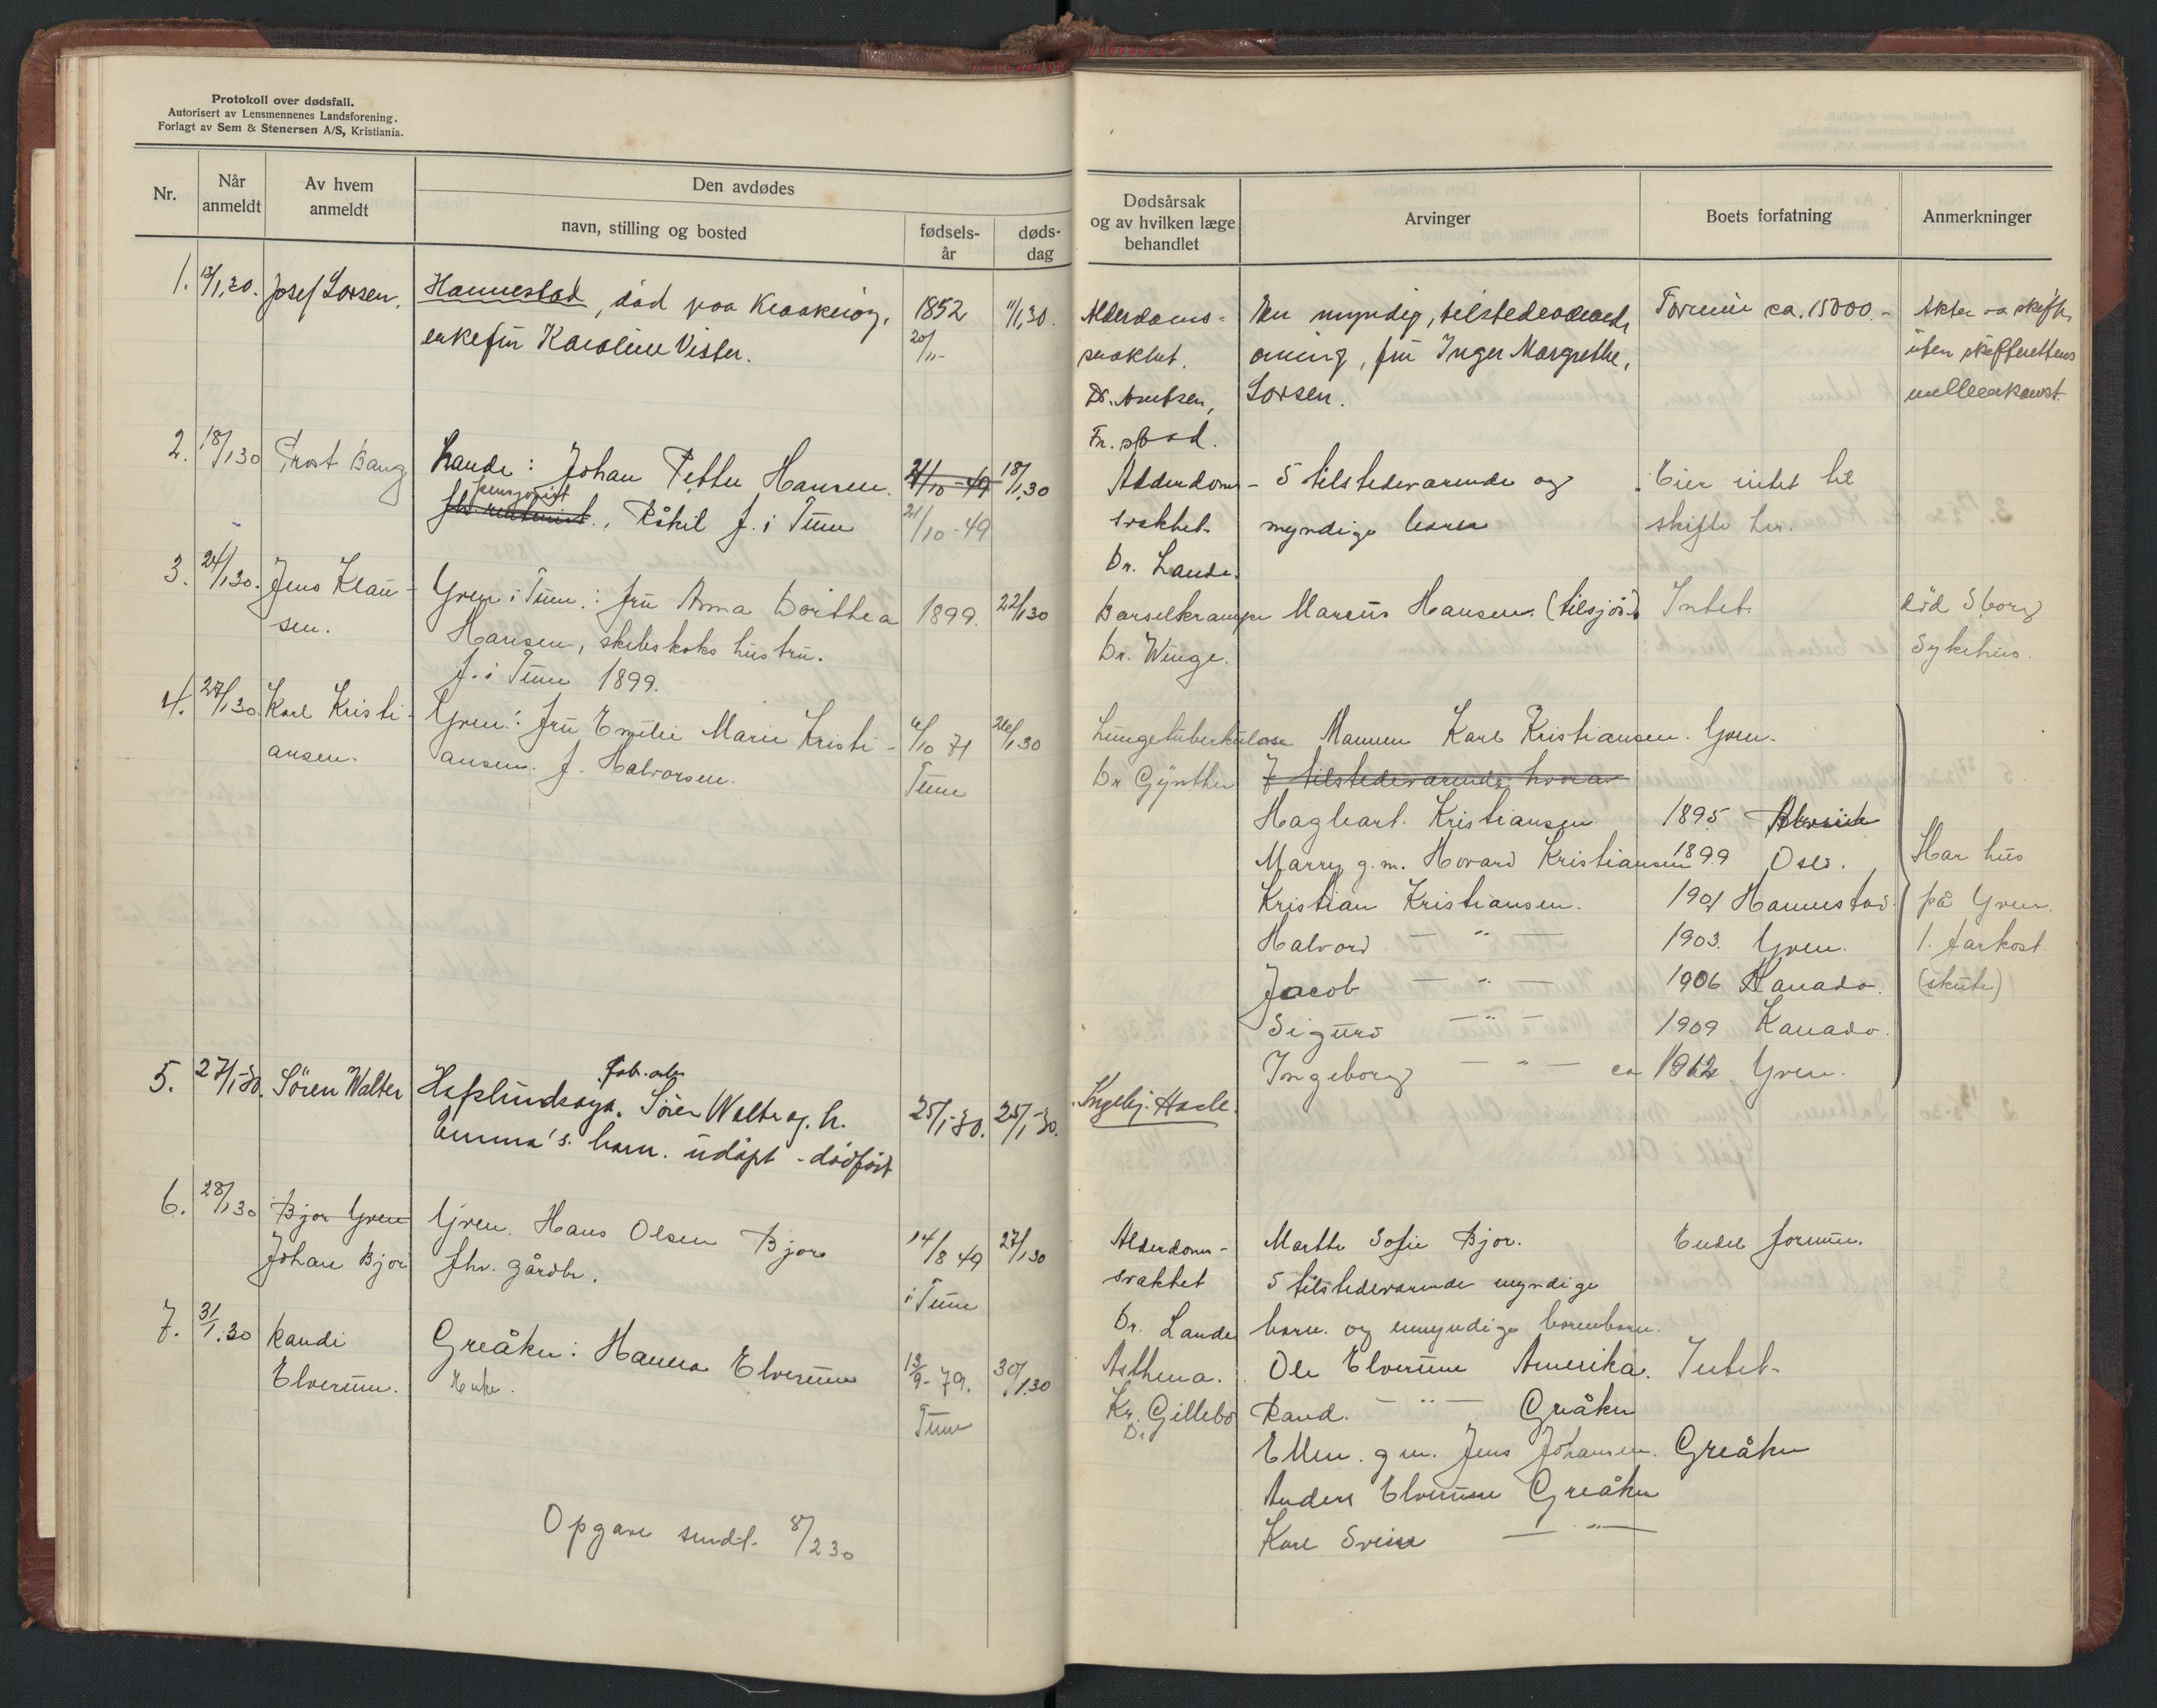 Protokoll over dødsfall.
Autorisert av Lensmennenes Landsforening.
Forlagt av Sem & Stenersen A/S, Kristiania.
Nr.
Når
anmeldt
Av hvem
anmeldt
Den avdødes
navn, stilling og bosted
fødsels-
år
døds-
dag
Dødsårsak
og av hvilken læge
behandlet
Arvinger
Boets forfatning
Anmerkninger
1. 13/1,30. Josef Larsen. Hannestad, død paa 1852 11/1,30.
enkefru Karoline Vister. 20/11-
Alderdoms-
svakhet.
Dr. Arntsen,
Fr.stad.
En myndig, tilstedeværende
arving, fru Inger Margrethe,
Larsen.
Formue ca. 15000.-
uten skifterettens
mellemkomst.
2. 18/1 30 Prost Bang Lande: Johan Petter Hansen. 21/10-49 18/1 30
pensjonist
fhv. , Råkil f. i Tune 21/10-49
Alderdoms-
svakhet
Dr. Lande.
5 tilstedevarende og
myndige barn
Eier intet til
skifte her.
3. 24/1 30. Jens Klau-
sen.
Yven i Tune: fru Anna Dorthea 1899. 22/1 30
Hansen, skibskoks hustru.
f. i Tune 1899.
Barselkrampe
Dr. Winge.
Marcus Hansen. (tilsjøs)
Intet.
død Sborg
Sykehus.
4. 27/1 30 Karl Kristi-
ansen.
Yven: fru Emilie Marie Kristi-
ansen. f. Halvorsen.
6/10 71
Tune
26/1 30
Lungetuberkulose
Dr Gynther
Mannen Karl Kristiansen. Yven.
7 tilstedevarende hvorav
Hagbart. Kristiansen 1895
Marry g.m. Hovard Kristiansen 1899 Oslo.
Kristian Kristiansen. 1901 Hannestad
Halvord — " — 1903. Yven.
Jacob — " — 1906 Kanada.
Sigurd — " — 1909 Kanada.
Ingeborg — " — ca 1912 Yven.
Har hus
på Yven.
1. farkost.
(skute)
5. 27/1-30. Søren Walter Hafslundsøya. Fab.arb. Søren Walter og h.
Emma's barn. udøpt - dødfødt
25/1-30. 25/1-30.
Ingebj. Hasle.
6. 28/1 30 Bjor Yven
Johan Bjor
Yven. Hans Olsen Bjor
fhv. gårdbr.
14/8 49
i Tune
27/1 30
Alderdoms-
svakhet
Dr. Lande
Marthe Sofie Bjor.
5 tilstedevarende myndige
barn. og umyndige barnebarn.
Endel formue.
7. 31/1.30 Randi
Elverum.
Greåker: Hanna Elverum
Enke.
13/9-79.
Tune
30/1.30
Asthma.
Kr. Gillebo
Dr
Ole Elverum Amerika. Intet-
Rand. — " — Greåker
Ellen. gm. Jens Johansen. Greåker
Anders Elverum Greåker
Kare Svein — " —
Opgave sendt. 8/2 30